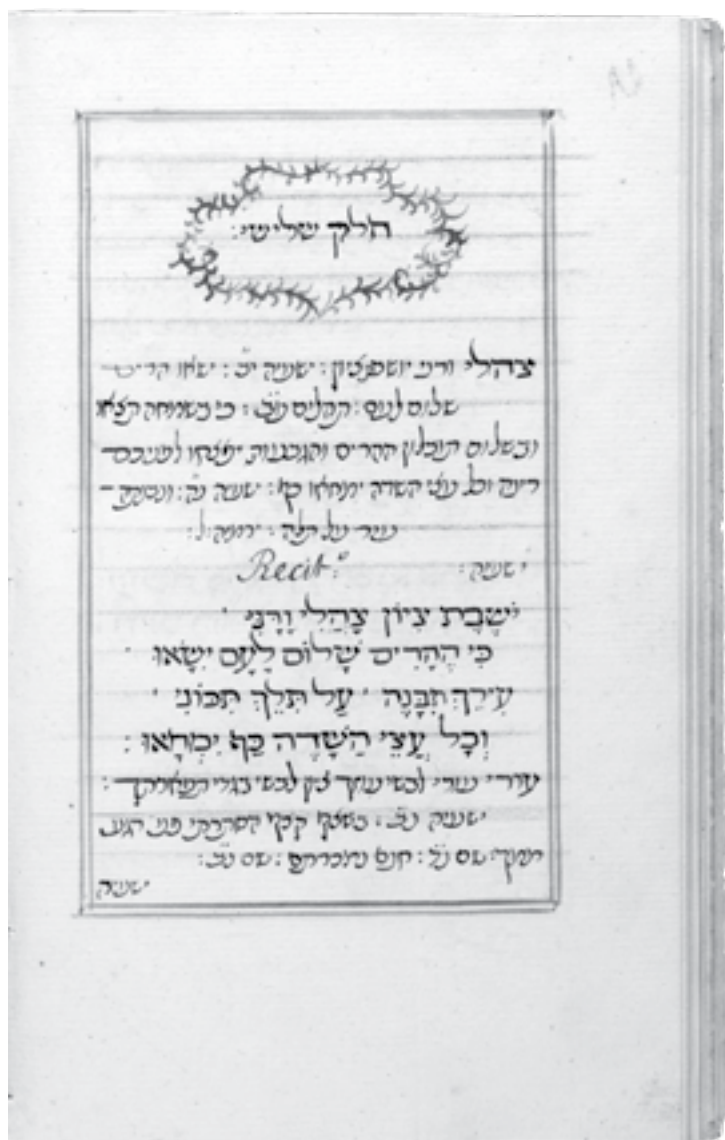 חלק שלישי:
צהלי ורני יושבת ציון: ישעיה יב: ישאו הרים
שלום לעם: תהלים עב: כי בשמחה תצאו
ובשלום תובלון ההרים והגבעות יפצחו לפניכם
רינה וכל עצי השדה ימחאו כף: ישעיה נה: ונבנתה
עיר על תלה: ירמיה ל:
ישעיה: Recit.º
יֹשֶׁבֶת צִיּוֹן צָהֲלִי וָרׇנִּי ׳
כִּי הֶהָרִים שָׁלוֹם לָעָם יִשָׂאוּ ׳
עִירֵךְ תִּבָּנֶה ׳ עַל תִּלֵּךְ תִּכּוֹנִי ׳
וְכָל עֲצֵי הַשָּׂדֶה כַּף יִמְחָאוּ :
עורי עורי לבשי עוזך ציון לבשי בגדי תפארתך:
ישעיה נב: בשצף קצף הסתרתי פני רגע
ממך: שם נד: חנם נמכרתם: שם נב:
ישעיה